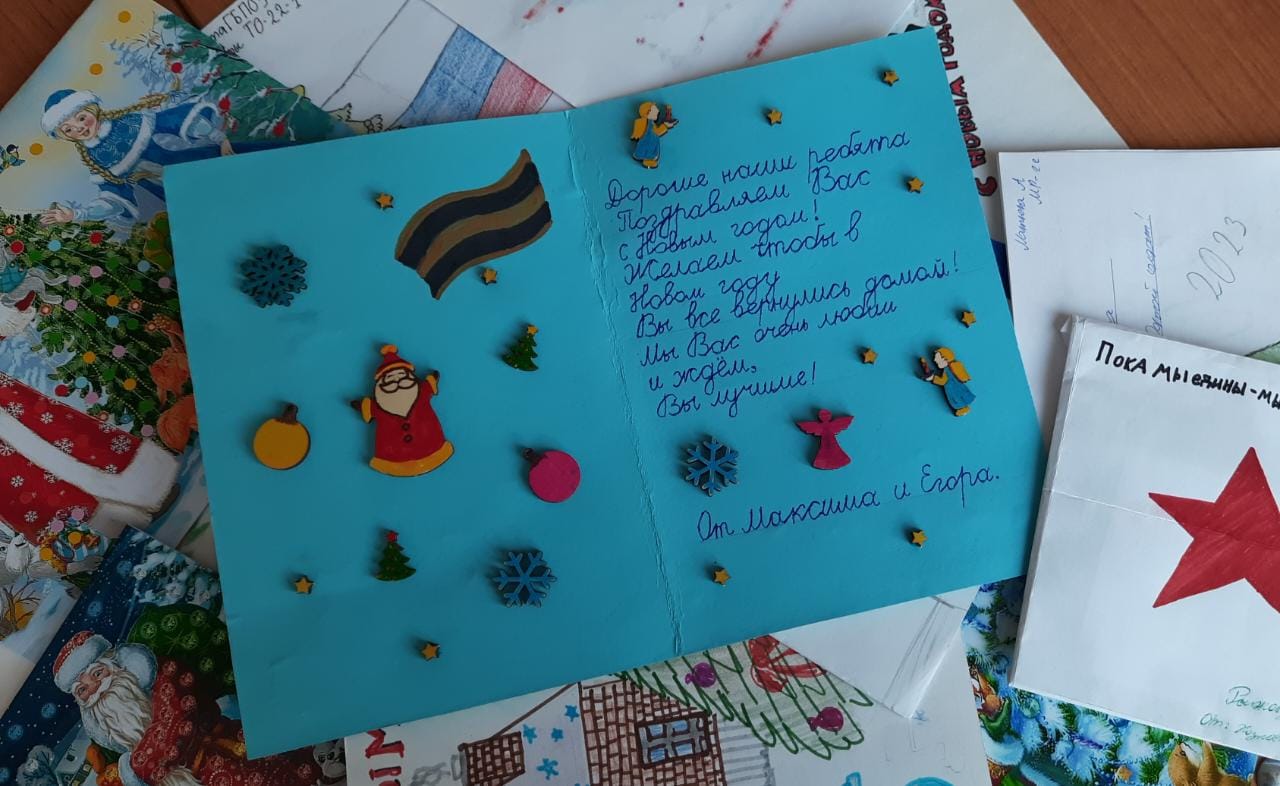 ТО-22-1
С НОВЫМ ГОДОМ
Дорогие наши ребята
Поздравляем Вас
с Новым годом!
Желаем чтобы в
Новом году
Вы все вернулись домой!
Мы Вас очень любим
и ждём,
Вы лучшие!
От Максима и Егора.
2023
Пока мы едины-мы
От: